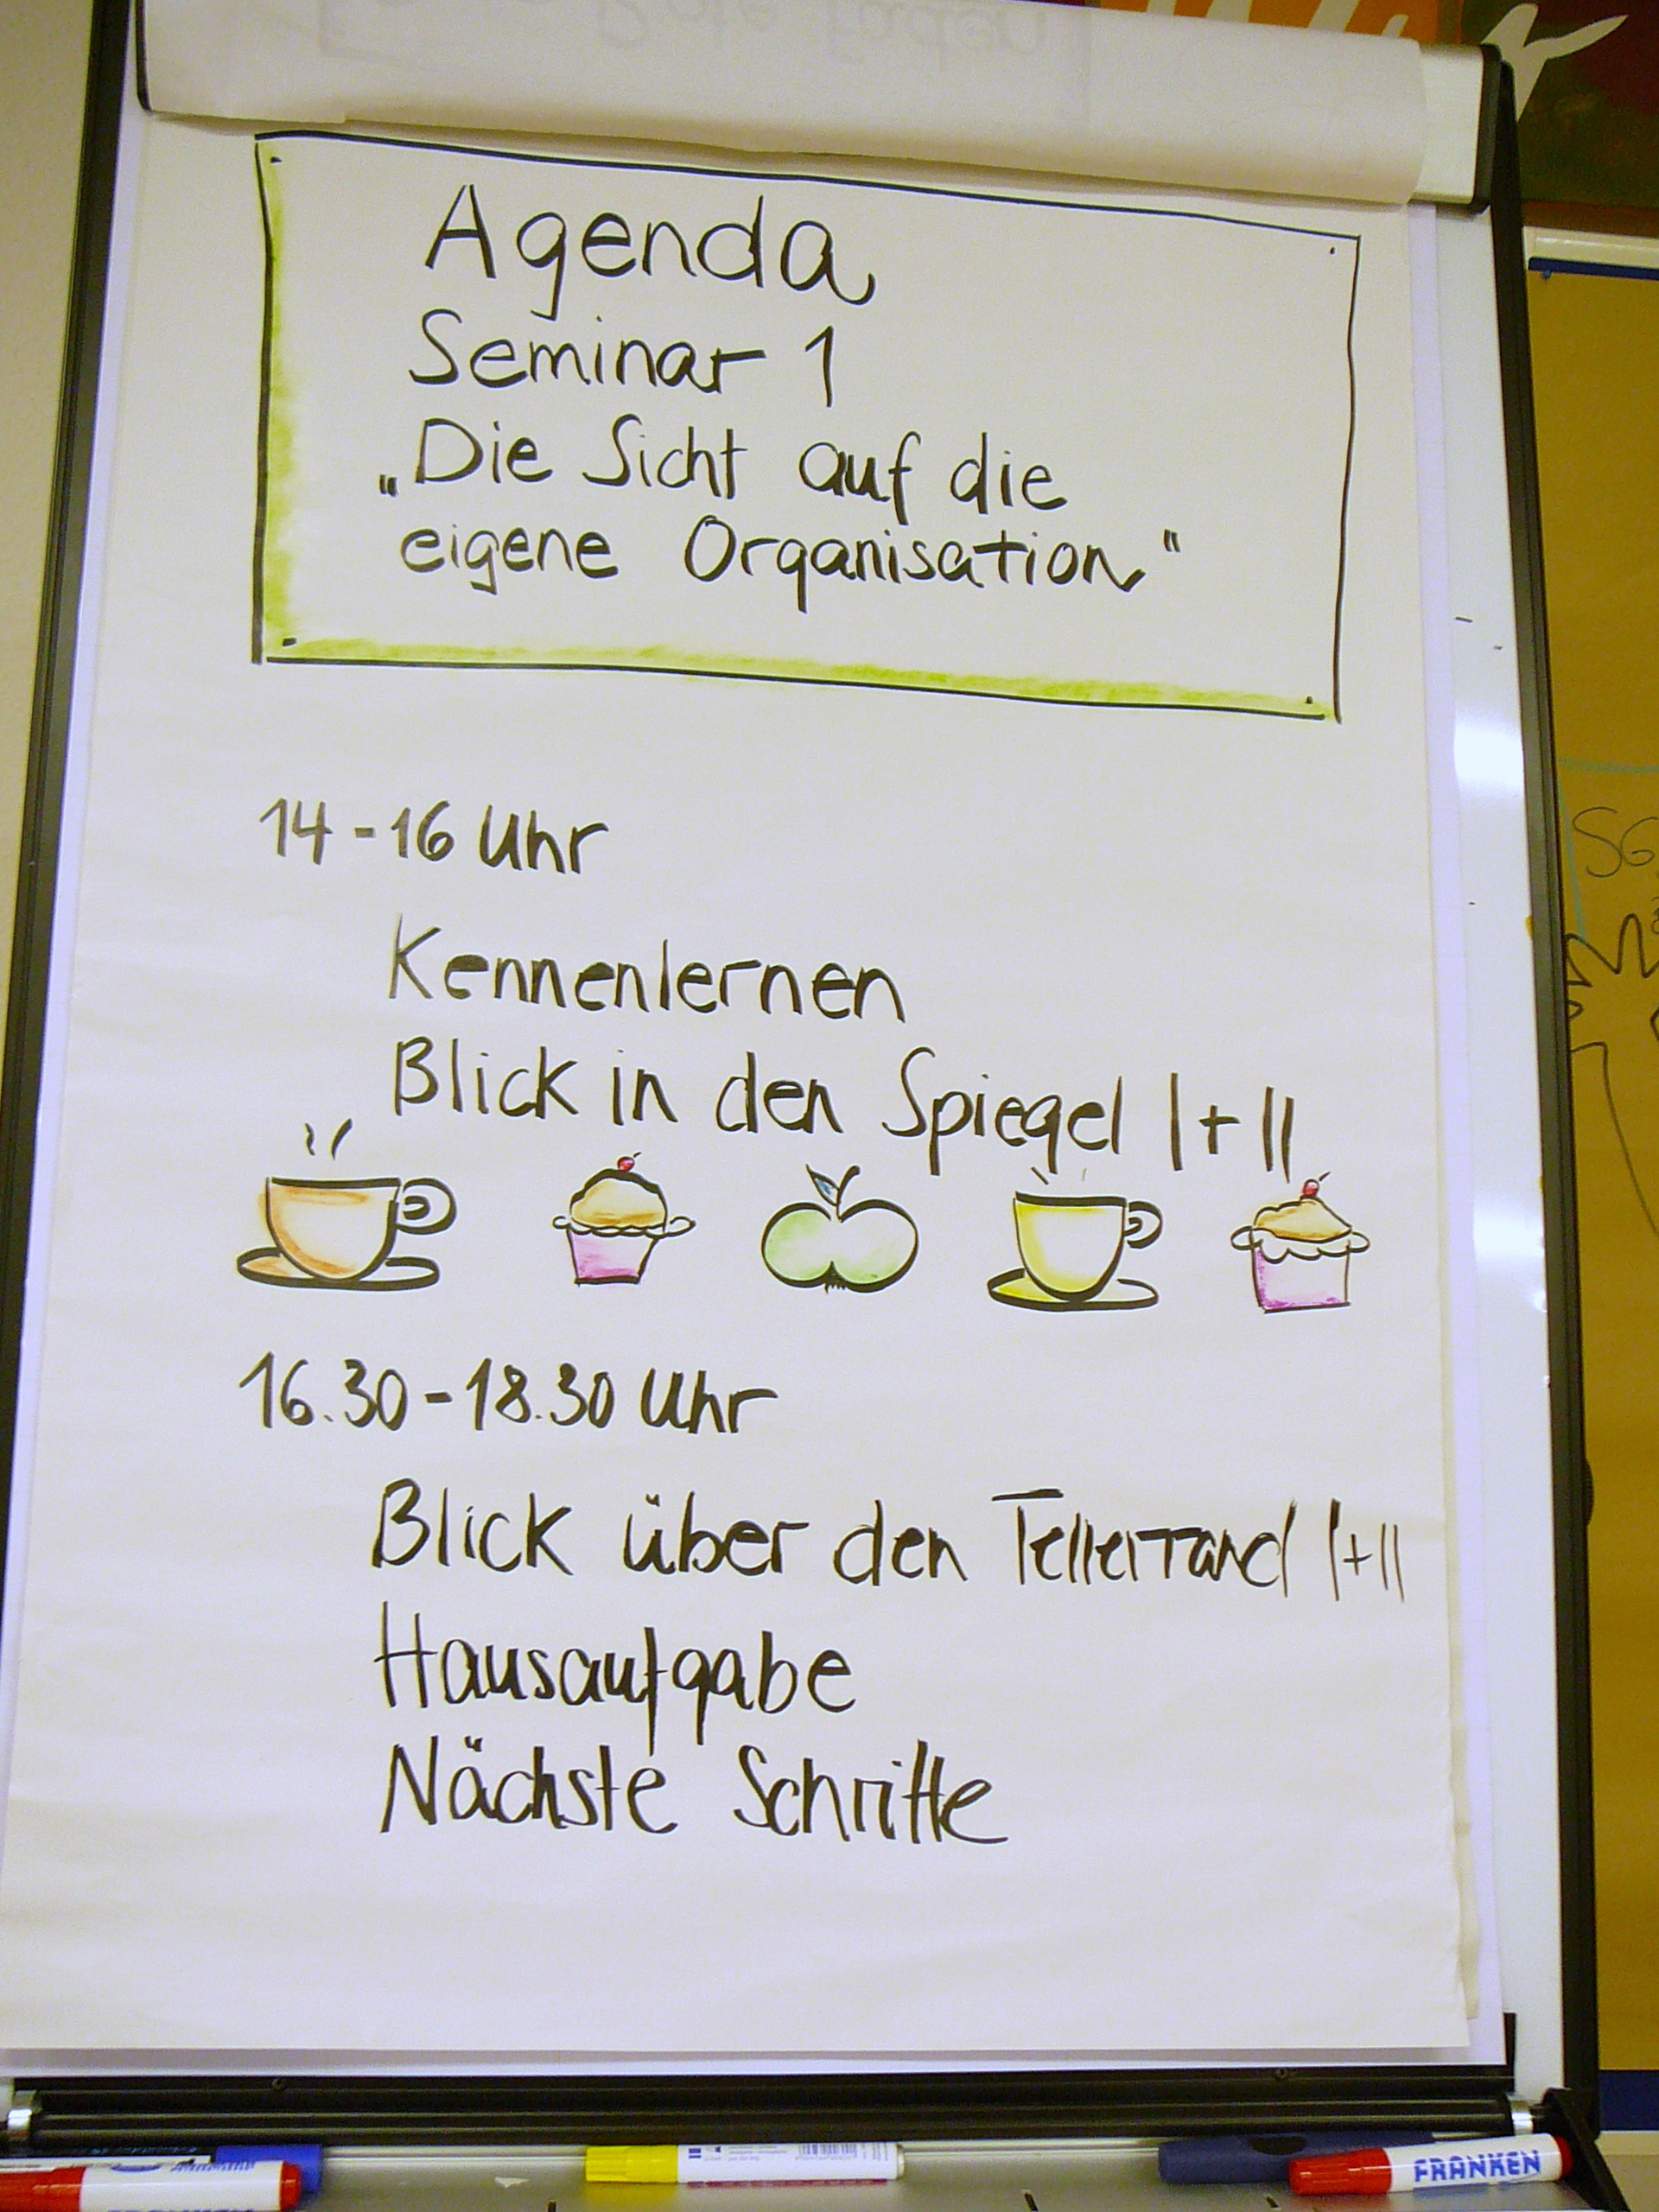 Agenda
Seminar 1
„Die Sicht auf die
eigene Organisation"
14 - 16 Uhr
Kennenlernen
Blick in den Spiegel I + II
16.30 - 18.30 Uhr
Blick über den Tellerrand I + II
Hausaufgabe
Nächste Schritte
FRANKEN